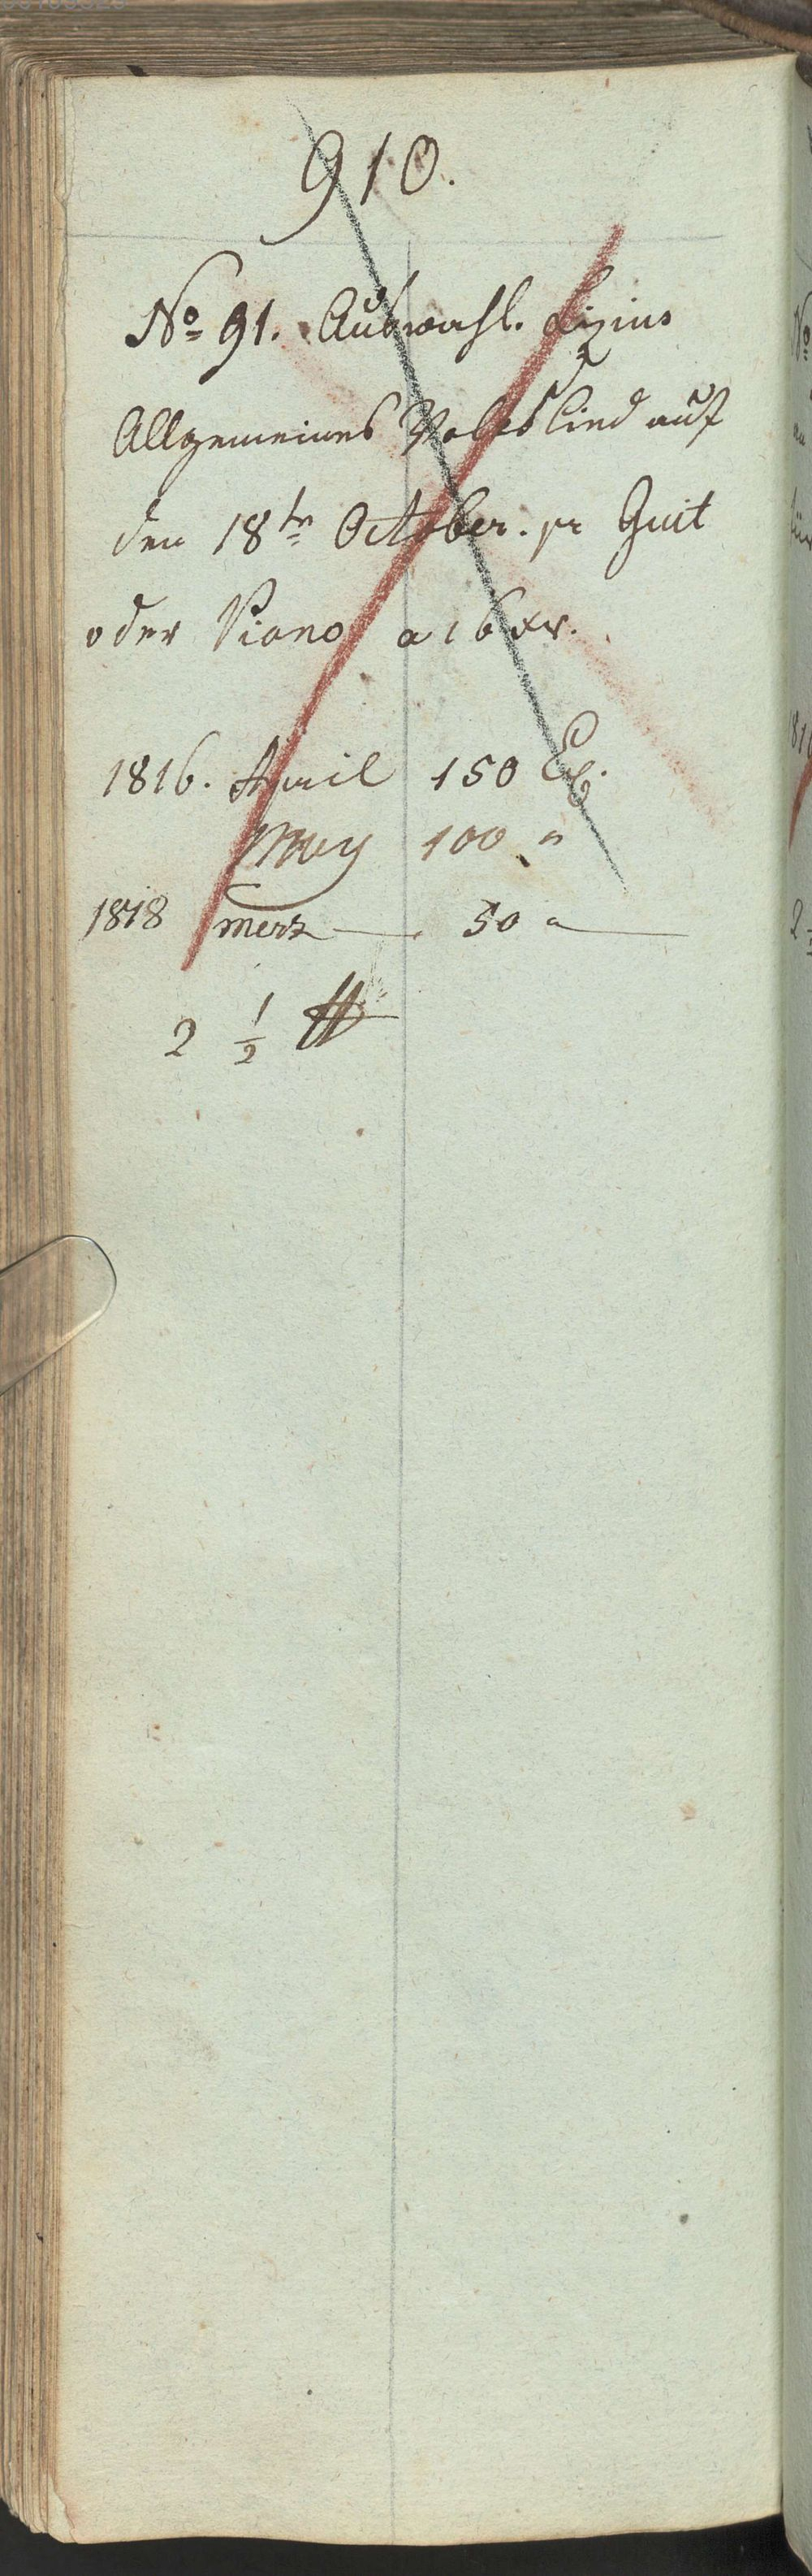 910.
No 91. Auswahl. Lizius
Allgemeines Volkslied auf
den 18tn October. pr Guit
oder Piano a 16 xr.
1816. April 150 Ex.
May 100 "
1818 Merz — 50 "
2 1/2 ℔